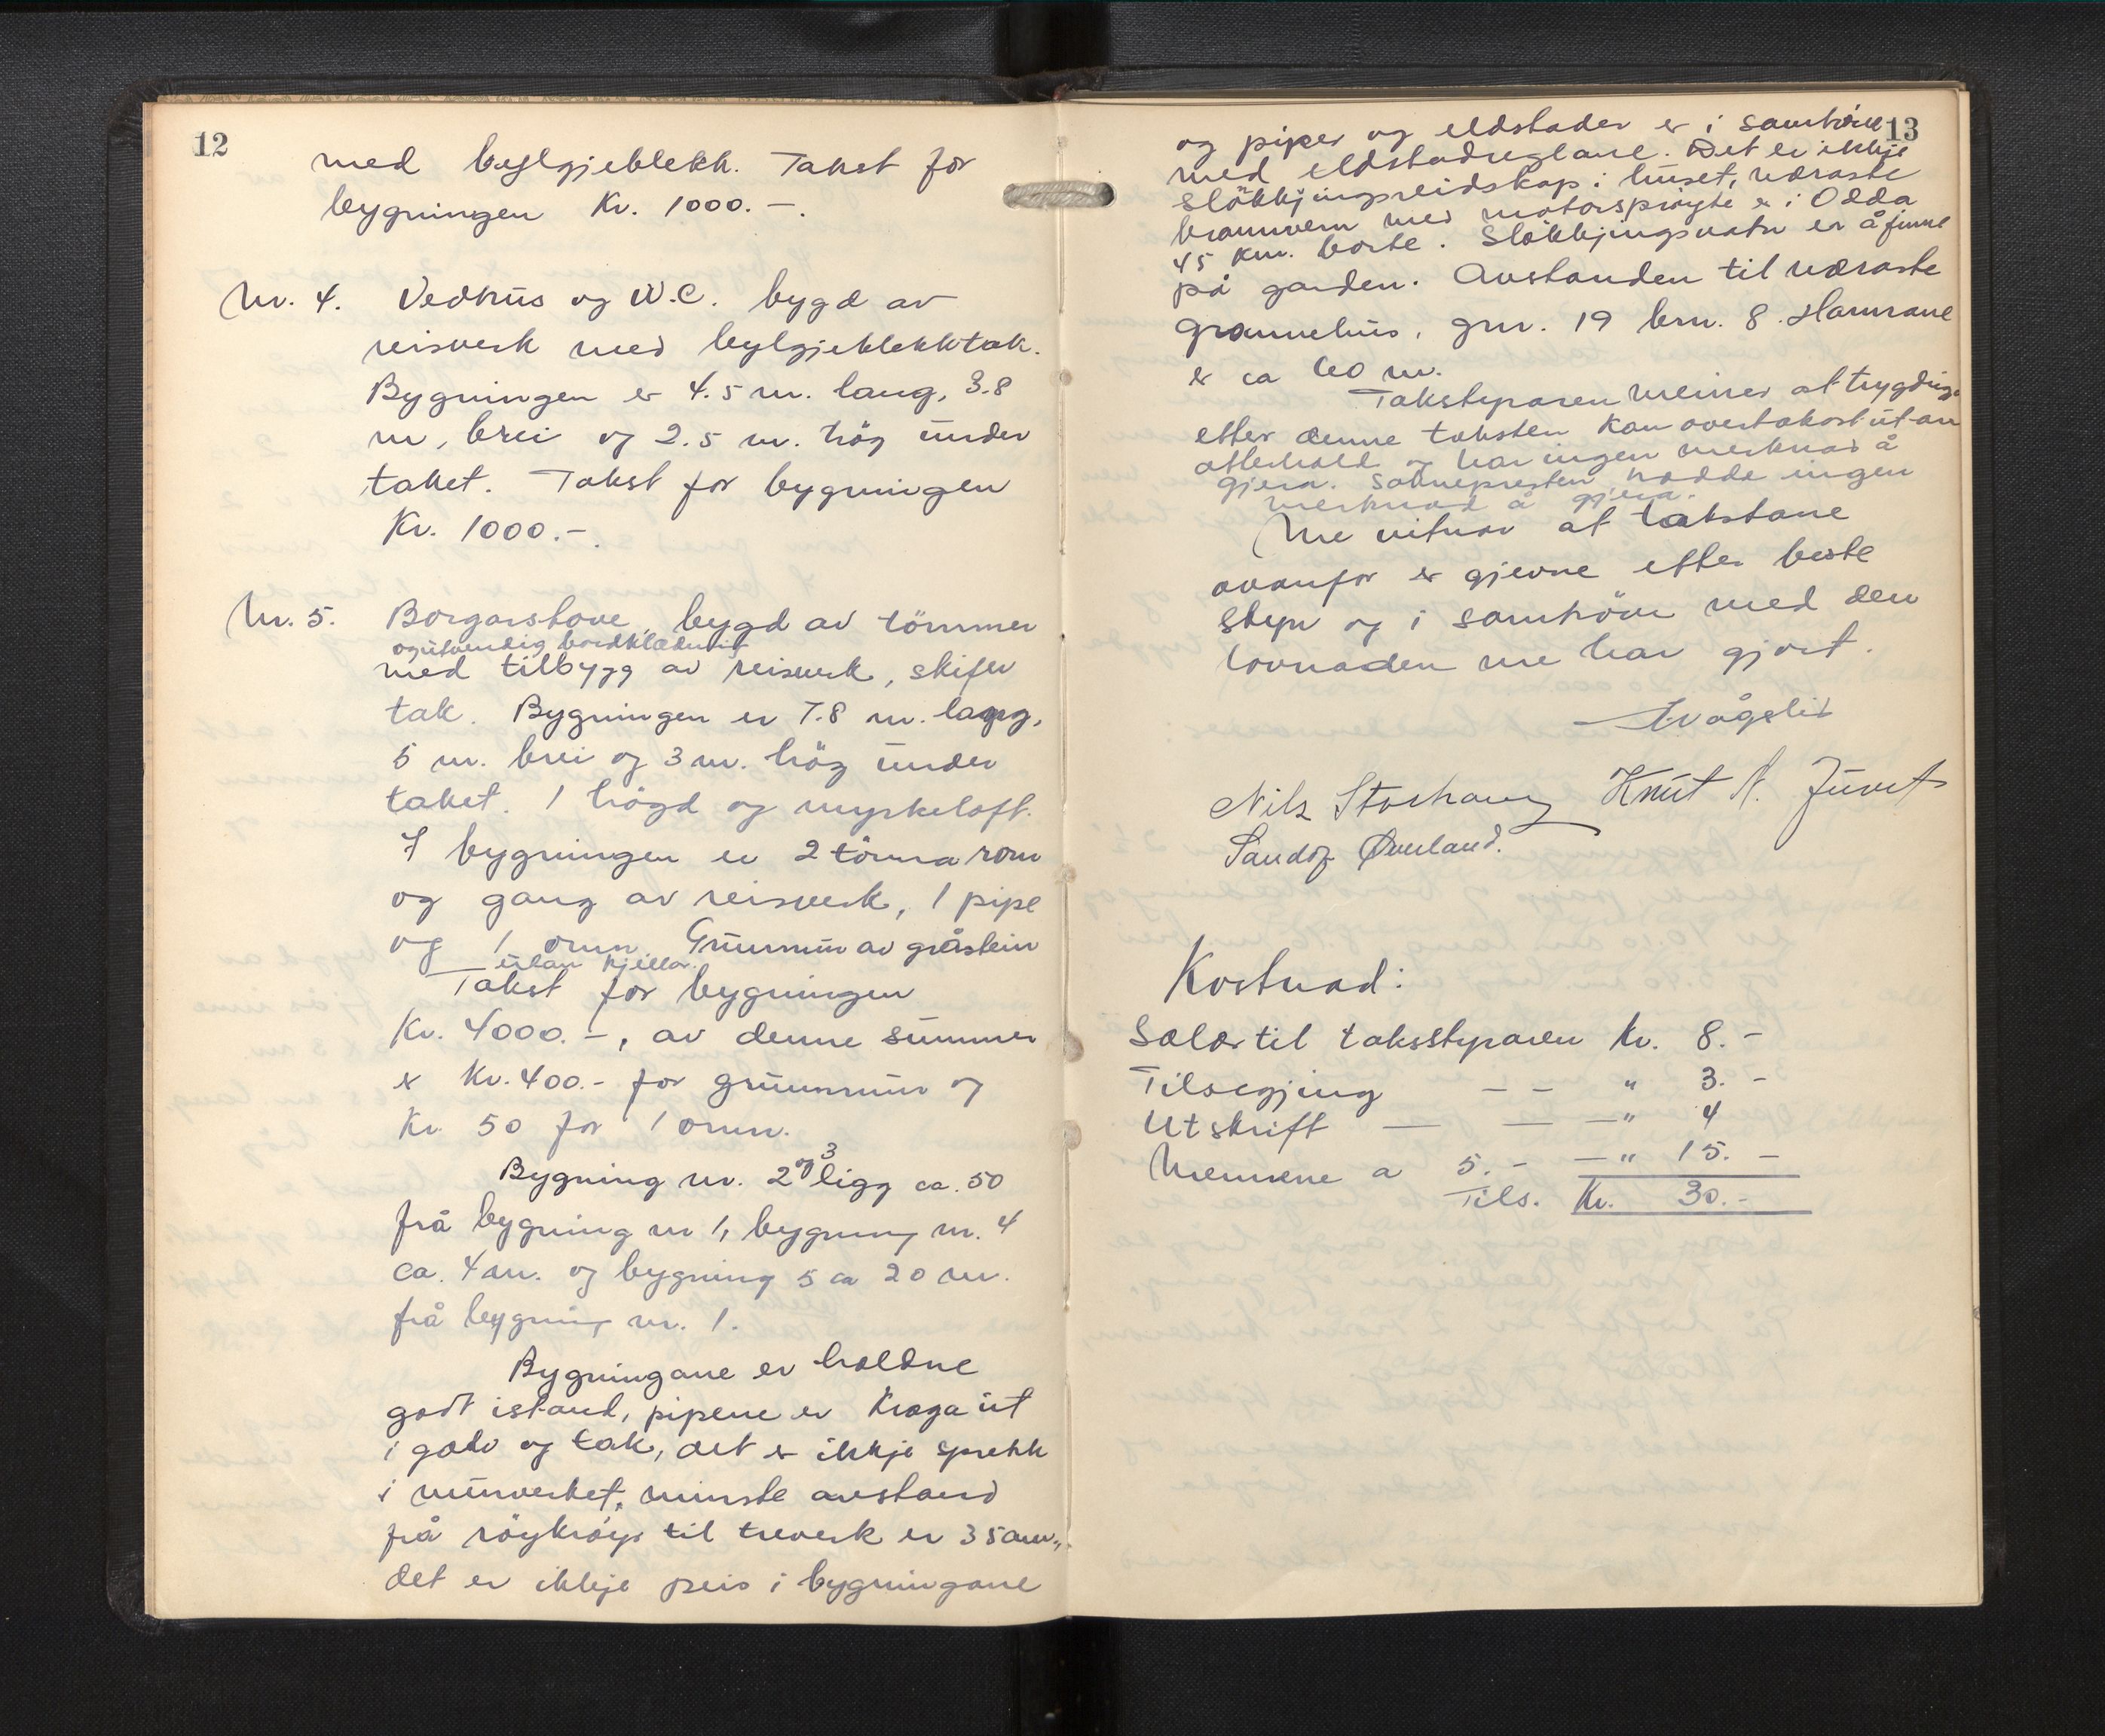 12
med bylgjeblekk. Takst for
bygningen Kr. 1000.-.
Nr. 4. Vedhus og W.C. bygd av
reisverk med bylgjeblekktak.
Bygningen er 4.5 m. lang, 3.8
m, brei og 2.5 m. hög under
taket. Takst for bygningen
Kr. 1000.-.
Nr. 5. Borgarstove, bygd av tömmer
og utvendig bordklædning
med tilbygg av reisverk, skifer
tak. Bygningen er 7.8 m. lang,
5 m. brei og 3 m. hög under
taket. 1 högd og myrkeloft.
I bygningen er 2 tömra rom
og gang av reisverk, 1 pipe
og 1 omn. Grunnmur av gråstein
utan kjellar.
Takst for bygningen
Kr. 4000.-, av denne summen
er Kr. 400.- for grunnmur og
Kr. 50 for 1 omn.
Bygning nr. 2 og 3 ligg ca. 50
frå bygning nr 1, bygning nr. 4
ca. 4 m. og bygning 5 ca 20 m.
frå bygning nr. 1.
Bygningane er haldne
godt istand, pipene er kraga ut
i golv og tak, det er ikkje sprekk
i murverket, minste avstand
frå röykröys til treverk er 35 cm.,
det er ikkje peis i bygningane
13
og piper og eldstader er i samhöve
med eldstadreglane. Det er ikkje
slökkjingsreidskap i huset, næraste
brannvern med motorspröyte er i Odda
45 km. borte. Slökkjingsvatn er å finne
på garden. Avstanden til næraste
grannehus, gnr. 19 brn. 8. Hamrane
er ca 60 m.
Takstyraren meiner at trygding
etter denne taksten kan overtakast utan
atterhald og har ingen merknad å
gjera. Soknepresten hadde ingen
merknad å gjera.
Me vitnar at takstane
ovanfor er gjevne etter beste
skyn og i samhöve med den
lovnaden me har gjort.
Vågslid
Nils Storhaug Knut N. Juvet
Sandof Øverland.
Kostnad:
Salær til takstyraren Kr. 8.-
Tilsegjing - - " 3.-
Utskrift — — — " 4
Mennene a 5.- — " 15.-
Tils. Kr. 30.-